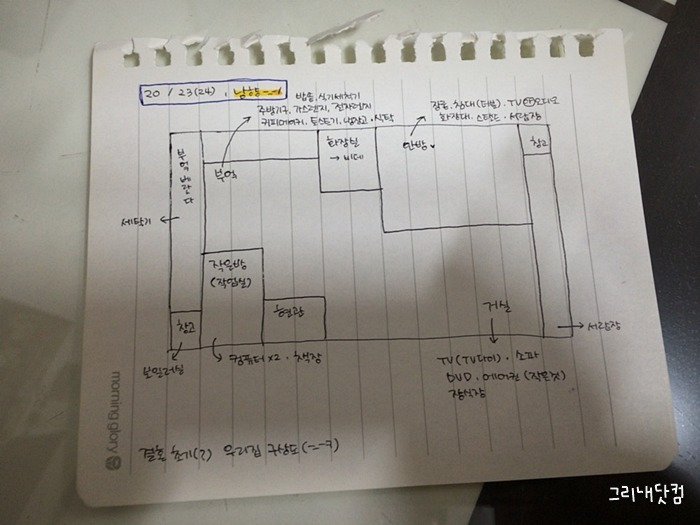 20 / 23(24).
밥솥, 식기세척기
주방기구. 가스렌지, 전자레인지
커피메이커. 토스트기, 냉장고. 식탁
장롱, 침대(더블). TV 오디오
화장대. 스탠드. 서랍장
부엌베란다
부엌
화장실
→ 비데
안방
창고
세탁기
작은방
(작업실)
현관
거실
창고
보일러실
컴퓨터×2. 책장
서랍장
TV(TV다이). 소파
DVD. 에어컨(작은것)
장식장
morning glory
결혼 초기(?) 우리집 구상도(=-=ㅋ)
그리내닷컴